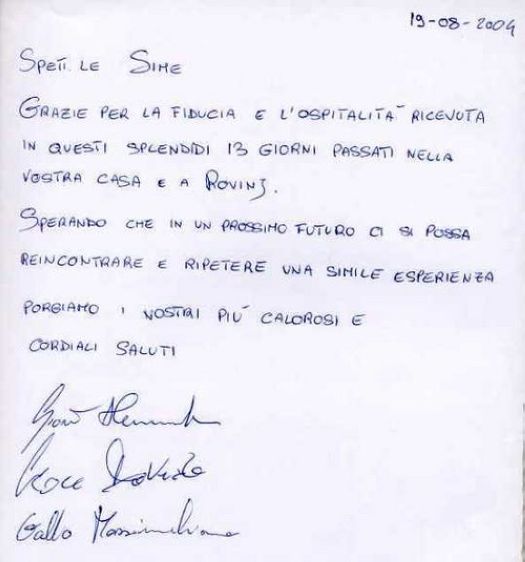 19-08-2004
SPETT. LE SIME
GRAZIE PER LA FIDUCIA E L'OSPITALITÀ RICEVUTA
IN QUESTI SPLENDIDI 13 GIORNI PASSATI NELLA
VOSTRA CASA E A ROVINJ.
SPERANDO CHE IN UN PROSSIMO FUTURO CI SI POSSA
REINCONTRARE E RIPETERE UNA SIMILE ESPERIENZA
PORGIAMO I NOSTRI PIÙ CALOROSI E
CORDIALI SALUTI
Croce
Gallo Massimiliano